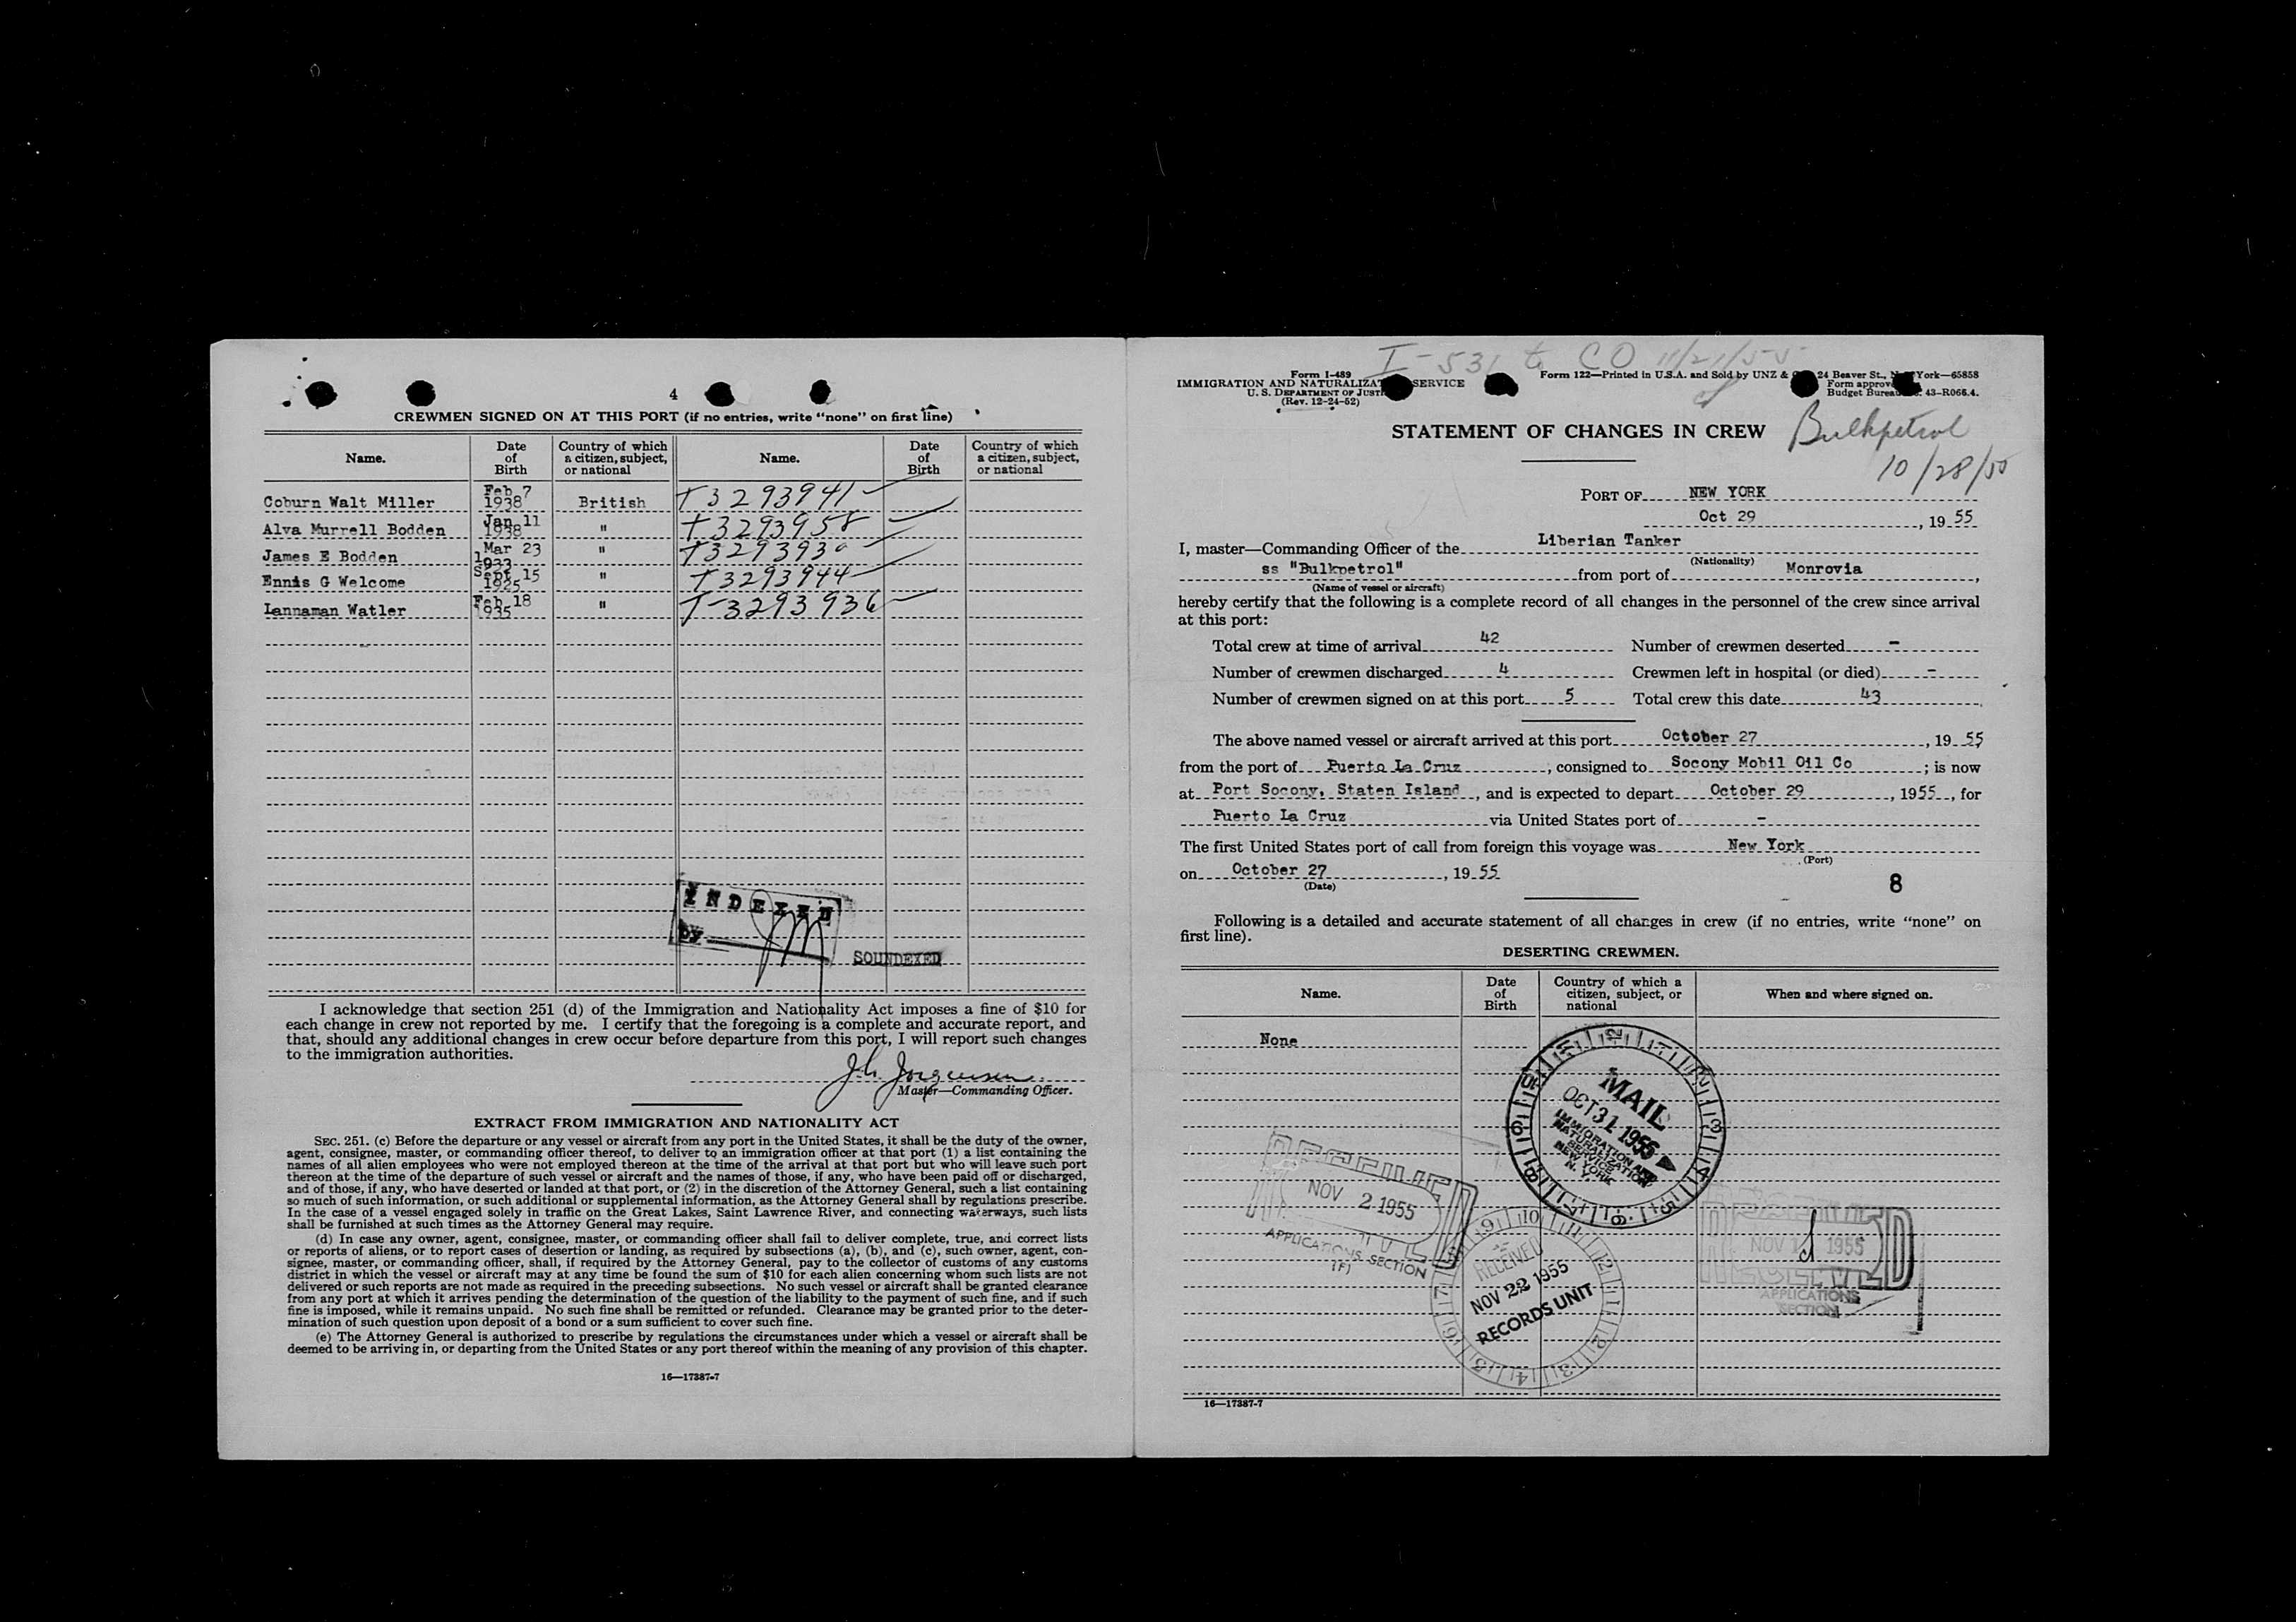 4
CREWMEN SIGNED ON AT THIS PORT (if no entries, write “none” on first line)
Name. Date of Birth Country of which a citizen, subject, or national Name. Date of Birth Country of which a citizen, subject, or national
Coburn Walt Miller Feb 7 1938 British T3293941
Alva Murrell Bodden Jan 11 1938 " T3293958
James E Bodden Mar 23 1933 " T3293930
Ennis G Welcome Sept 15 1925 " T3293944
Lannaman Watler Feb 18 1935 " T-3293936
INDEXED
by
SOUNDEXED
I acknowledge that section 251 (d) of the Immigration and Nationality Act imposes a fine of $10 for
each change in crew not reported by me. I certify that the foregoing is a complete and accurate report, and
that, should any additional changes in crew occur before departure from this port, I will report such changes
to the immigration authorities.
J.h. Jorgensen
Master—Commanding Officer.
EXTRACT FROM IMMIGRATION AND NATIONALITY ACT
SEC. 251. (c) Before the departure or any vessel or aircraft from any port in the United States, it shall be the duty of the owner,
agent, consignee, master, or commanding officer thereof, to deliver to an immigration officer at that port (1) a list containing the
names of all alien employees who were not employed thereon at the time of the arrival at that port but who will leave such port
thereon at the time of the departure of such vessel or aircraft and the names of those, if any, who have been paid off or discharged,
and of those, if any, who have deserted or landed at that port, or (2) in the discretion of the Attorney General, such a list containing
so much of such information, or such additional or supplemental information, as the Attorney General shall by regulations prescribe.
In the case of a vessel engaged solely in traffic on the Great Lakes, Saint Lawrence River, and connecting waterways, such lists
shall be furnished at such times as the Attorney General may require.
(d) In case any owner, agent, consignee, master, or commanding officer shall fail to deliver complete, true, and correct lists
or reports of aliens, or to report cases of desertion or landing, as required by subsections (a), (b), and (c), such owner, agent, con-
signee, master, or commanding officer, shall, if required by the Attorney General, pay to the collector of customs of any customs
district in which the vessel or aircraft may at any time be found the sum of $10 for each alien concerning whom such lists are not
delivered or such reports are not made as required in the preceding subsections. No such vessel or aircraft shall be granted clearance
from any port at which it arrives pending the determination of the question of the liability to the payment of such fine, and if such
fine is imposed, while it remains unpaid. No such fine shall be remitted or refunded. Clearance may be granted prior to the deter-
mination of such question upon deposit of a bond or a sum sufficient to cover such fine.
(e) The Attorney General is authorized to prescribe by regulations the circumstances under which a vessel or aircraft shall be
deemed to be arriving in, or departing from the United States or any port thereof within the meaning of any provision of this chapter.
16—17387-7
I-531 to CO 11/21/55
Form I-489
IMMIGRATION AND NATURALIZAT SERVICE
U. S. DEPARTMENT OF JUSTI
(Rev. 12-24-52)
Form 122—Printed in U.S.A. and Sold by UNZ & 24 Beaver St., N York—65858
Form approv
Budget Bureau 43-R066.4.
STATEMENT OF CHANGES IN CREW
Bulkpetrol
10/28/55
PORT OF NEW YORK
Oct 29, 19 55
I, master—Commanding Officer of the Liberian Tanker
(Nationality)
ss "Bulkpetrol" from port of Monrovia,
(Name of vessel or aircraft)
hereby certify that the following is a complete record of all changes in the personnel of the crew since arrival
at this port:
Total crew at time of arrival 42 Number of crewmen deserted -
Number of crewmen discharged 4 Crewmen left in hospital (or died) -
Number of crewmen signed on at this port 5 Total crew this date 43
The above named vessel or aircraft arrived at this port October 27, 19 55
from the port of Puerto La Cruz, consigned to Socony Mobil Oil Co; is now
at Port Socony, Staten Island, and is expected to depart October 29, 1955, for
Puerto La Cruz via United States port of -
The first United States port of call from foreign this voyage was New York
(Port)
on October 27, 19 55
(Date)
8
Following is a detailed and accurate statement of all changes in crew (if no entries, write “none” on
first line).
DESERTING CREWMEN.
Name. Date of Birth Country of which a citizen, subject, or national When and where signed on.
None
MAIL
OCT 31 1955
IMMIGRATION AND
NATURALIZATION
SERVICE
NEW YORK
N. Y.
RECEIVED
NOV 2 1955
APPLICATIONS SECTION
(F)
RECEIVED
NOV 22 1955
RECORDS UNIT
RECEIVED
NOV 1 1955
APPLICATIONS
SECTION
16—17387-7